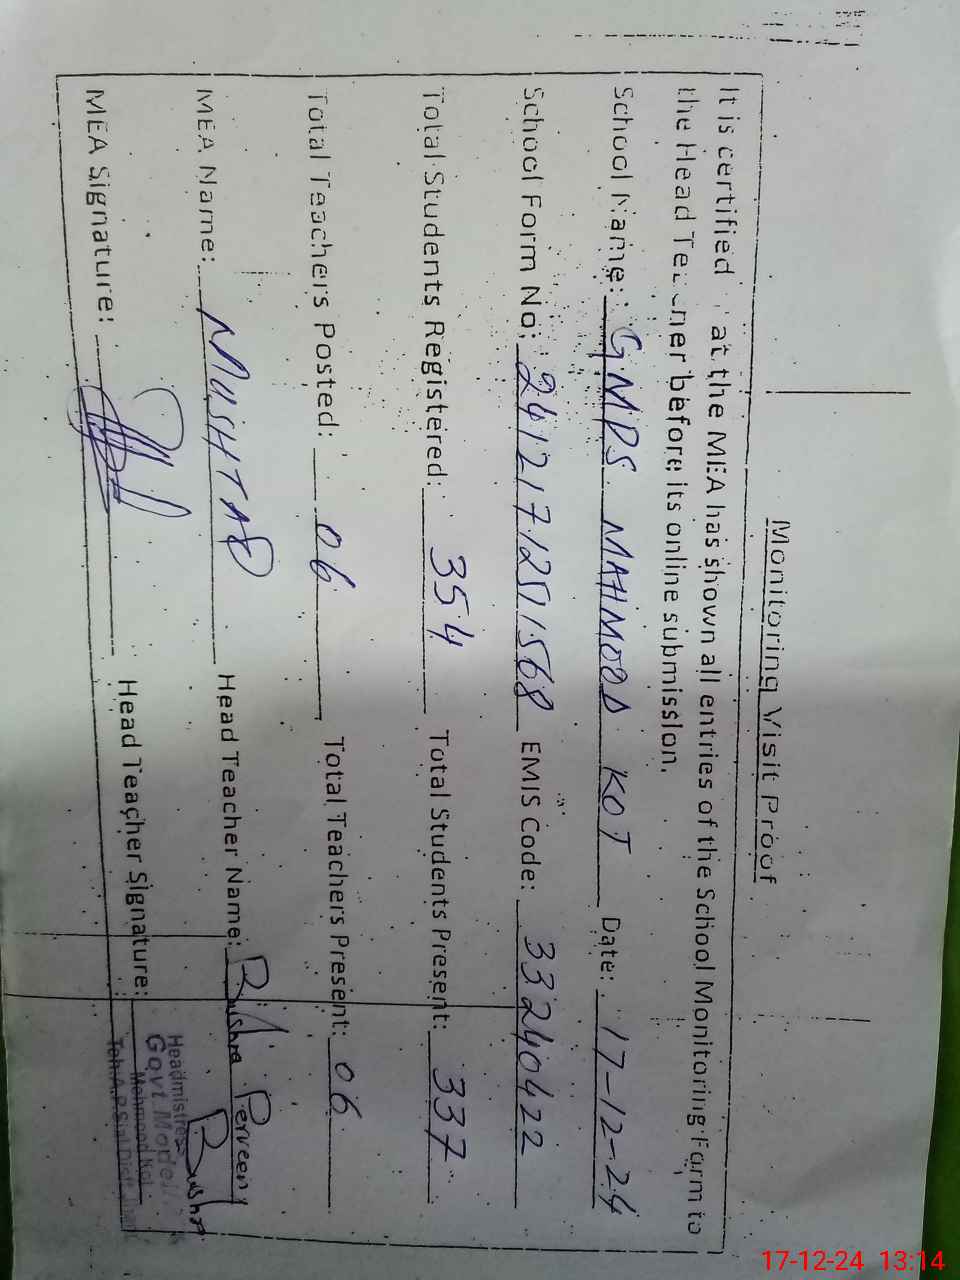 Monitoring Visit Proof
It is certified at the MEA has shown all entries of the School Monitoring Form to
the Head Teacher before its online submission.
School Name: GMPS MAHMOOD KOT Date: 17-12-24
School Form No: 24121712511568 EMIS Code: 33240422
Total Students Registered: 354 Total Students Present: 337
Total Teachers Posted: 06 Total Teachers Present: 06
MEA Name: MUSHTAQ Head Teacher Name: Bushra Perveen
MEA Signature: Head Teacher Signature: Bushra
Headmistress
Govt Model
Mahmood Kot
Teh: A.P Sial Distt
17-12-24 13:14